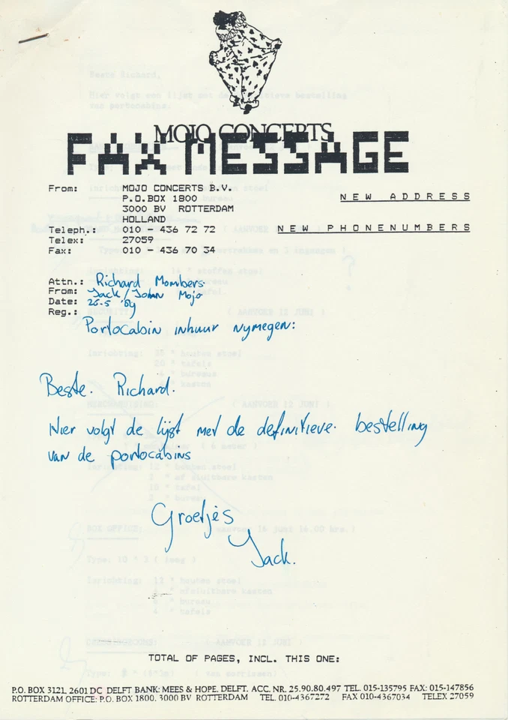 MOJO CONCERTS
FAX MESSAGE
From: MOJO CONCERTS B.V.
P.O.BOX 1800
3000 BV ROTTERDAM
HOLLAND
NEW ADDRESS
Teleph.: 010 - 436 72 72
NEW PHONENUMBERS
Telex: 27059
Fax: 010 - 436 70 34
Attn.: Richard Mombers.
From: Jack/Johan Mojo
Date: 26-5 '89
Reg.:
Portocabin inhuur nymegen:
Beste. Richard.
Hier volgt de lijst met de definitieve. bestelling
van de portocabins
Groetjes
Jack.
TOTAL OF PAGES, INCL. THIS ONE:
P.O. BOX 3121, 2601 DC DELFT BANK: MEES & HOPE. DELFT. ACC. NR. 25.90.80.497 TEL. 015-135795 FAX: 015-147856
ROTTERDAM OFFICE: P.O. BOX 1800, 3000 BV ROTTERDAM TEL. 010-4367272 FAX 010-4367034 TELEX 27059